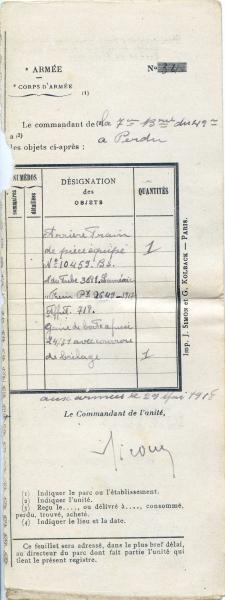 * ARMÉE
* CORPS D'ARMÉE
(1)
No 34
Le commandant de (3) La 7me Bie du 49e
a (2) a Perdu
les objets ci-après :
NUMÉROS
sommaires
détaillés
DÉSIGNATION
des
OBJETS
QUANTITÉS
Arrière Train
de pièce équipé 1
No 10459. Bs.
du Tube 3618.
Frein Px 9649-1917
Aff. t. 718.
24/31 avec
de 1
aux armées le 29 Mai 1918
Le Commandant de l'unité,
(1) Indiquer le parc ou l'établissement.
(2) Indiquer l'unité.
(3) Reçu le...., ou délivré à...., consommé,
perdu, trouvé, acheté.
(4) Indiquer le lieu et la date.
Ce feuillet sera adressé, dans le plus bref délai,
au directeur du parc dont fait partie l'unité qui
tient le présent registre.
Imp. J. SIMON et G. KOLBACK — PARIS.